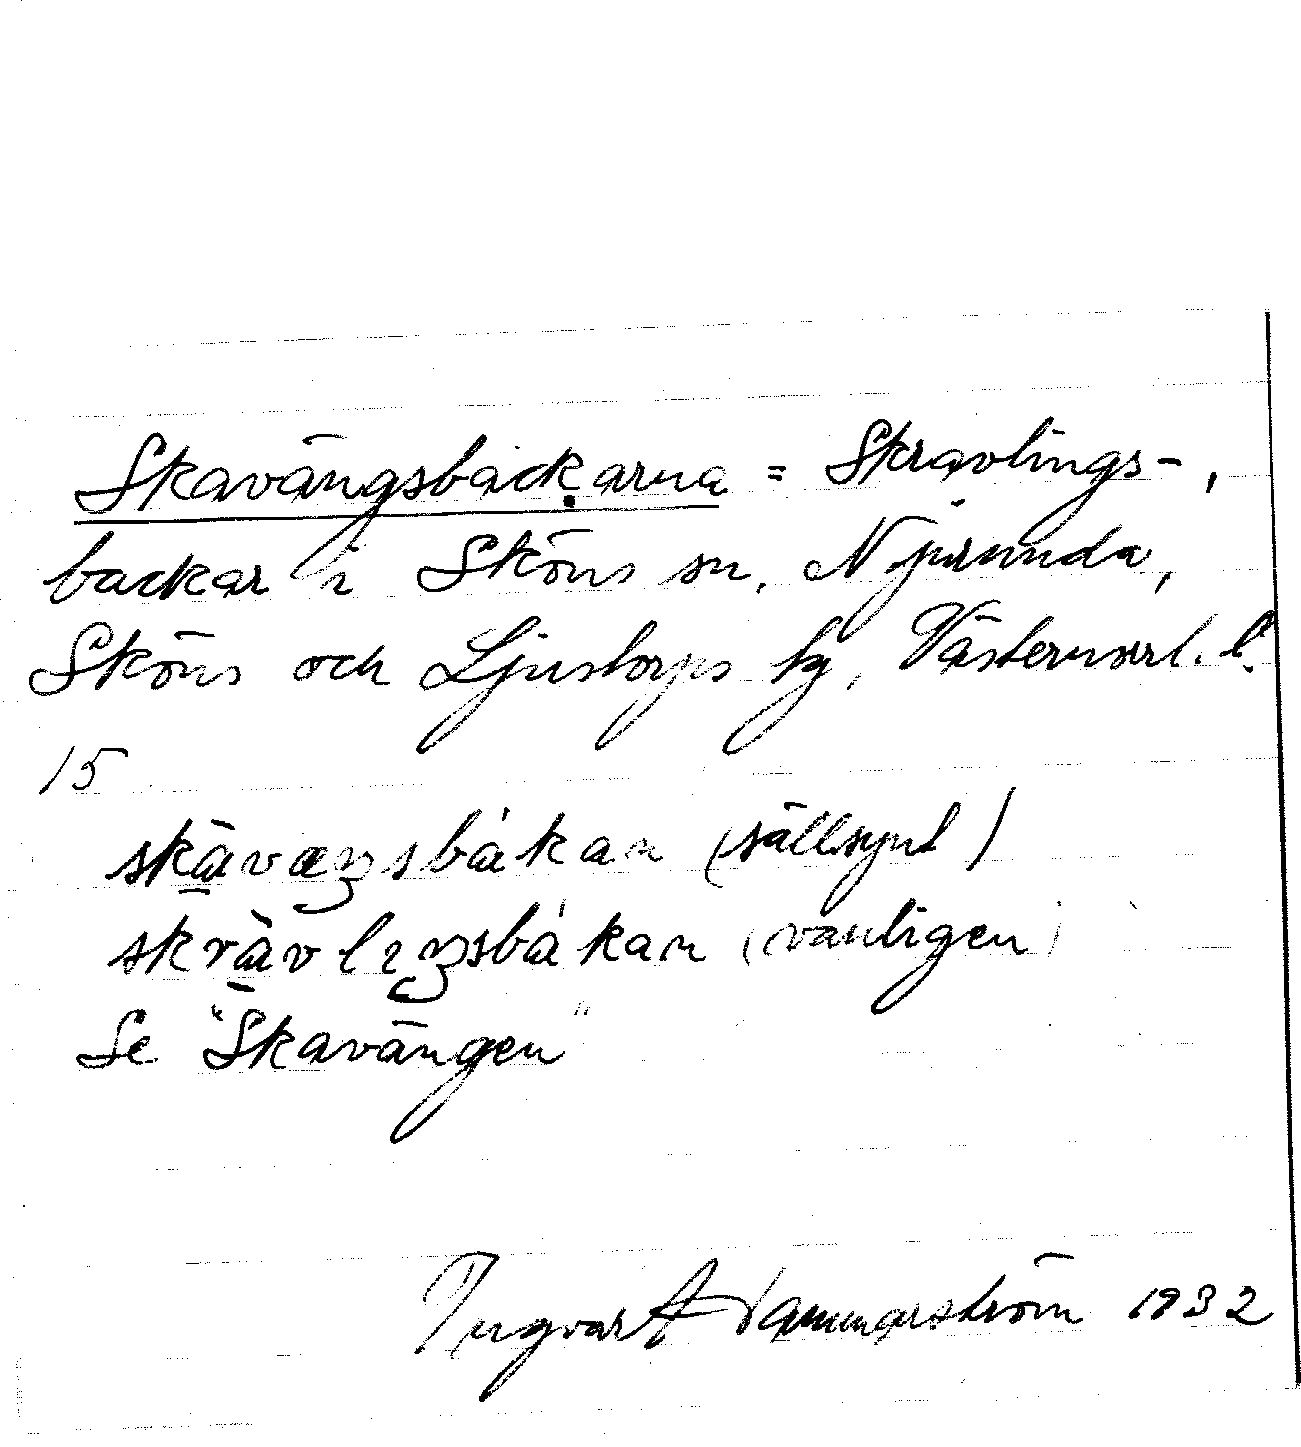 Skavängsbackarna = Skravlings-,
backar i Sköns sn, Njurunda,
Sköns och Ljustorps tg, Västernorrl. l.
15
skàvæŋsbákan (sällsynt)
skràvlıŋsbákan (vanligen)
Se "Skavängen"
Ingvar Hammarström 1932